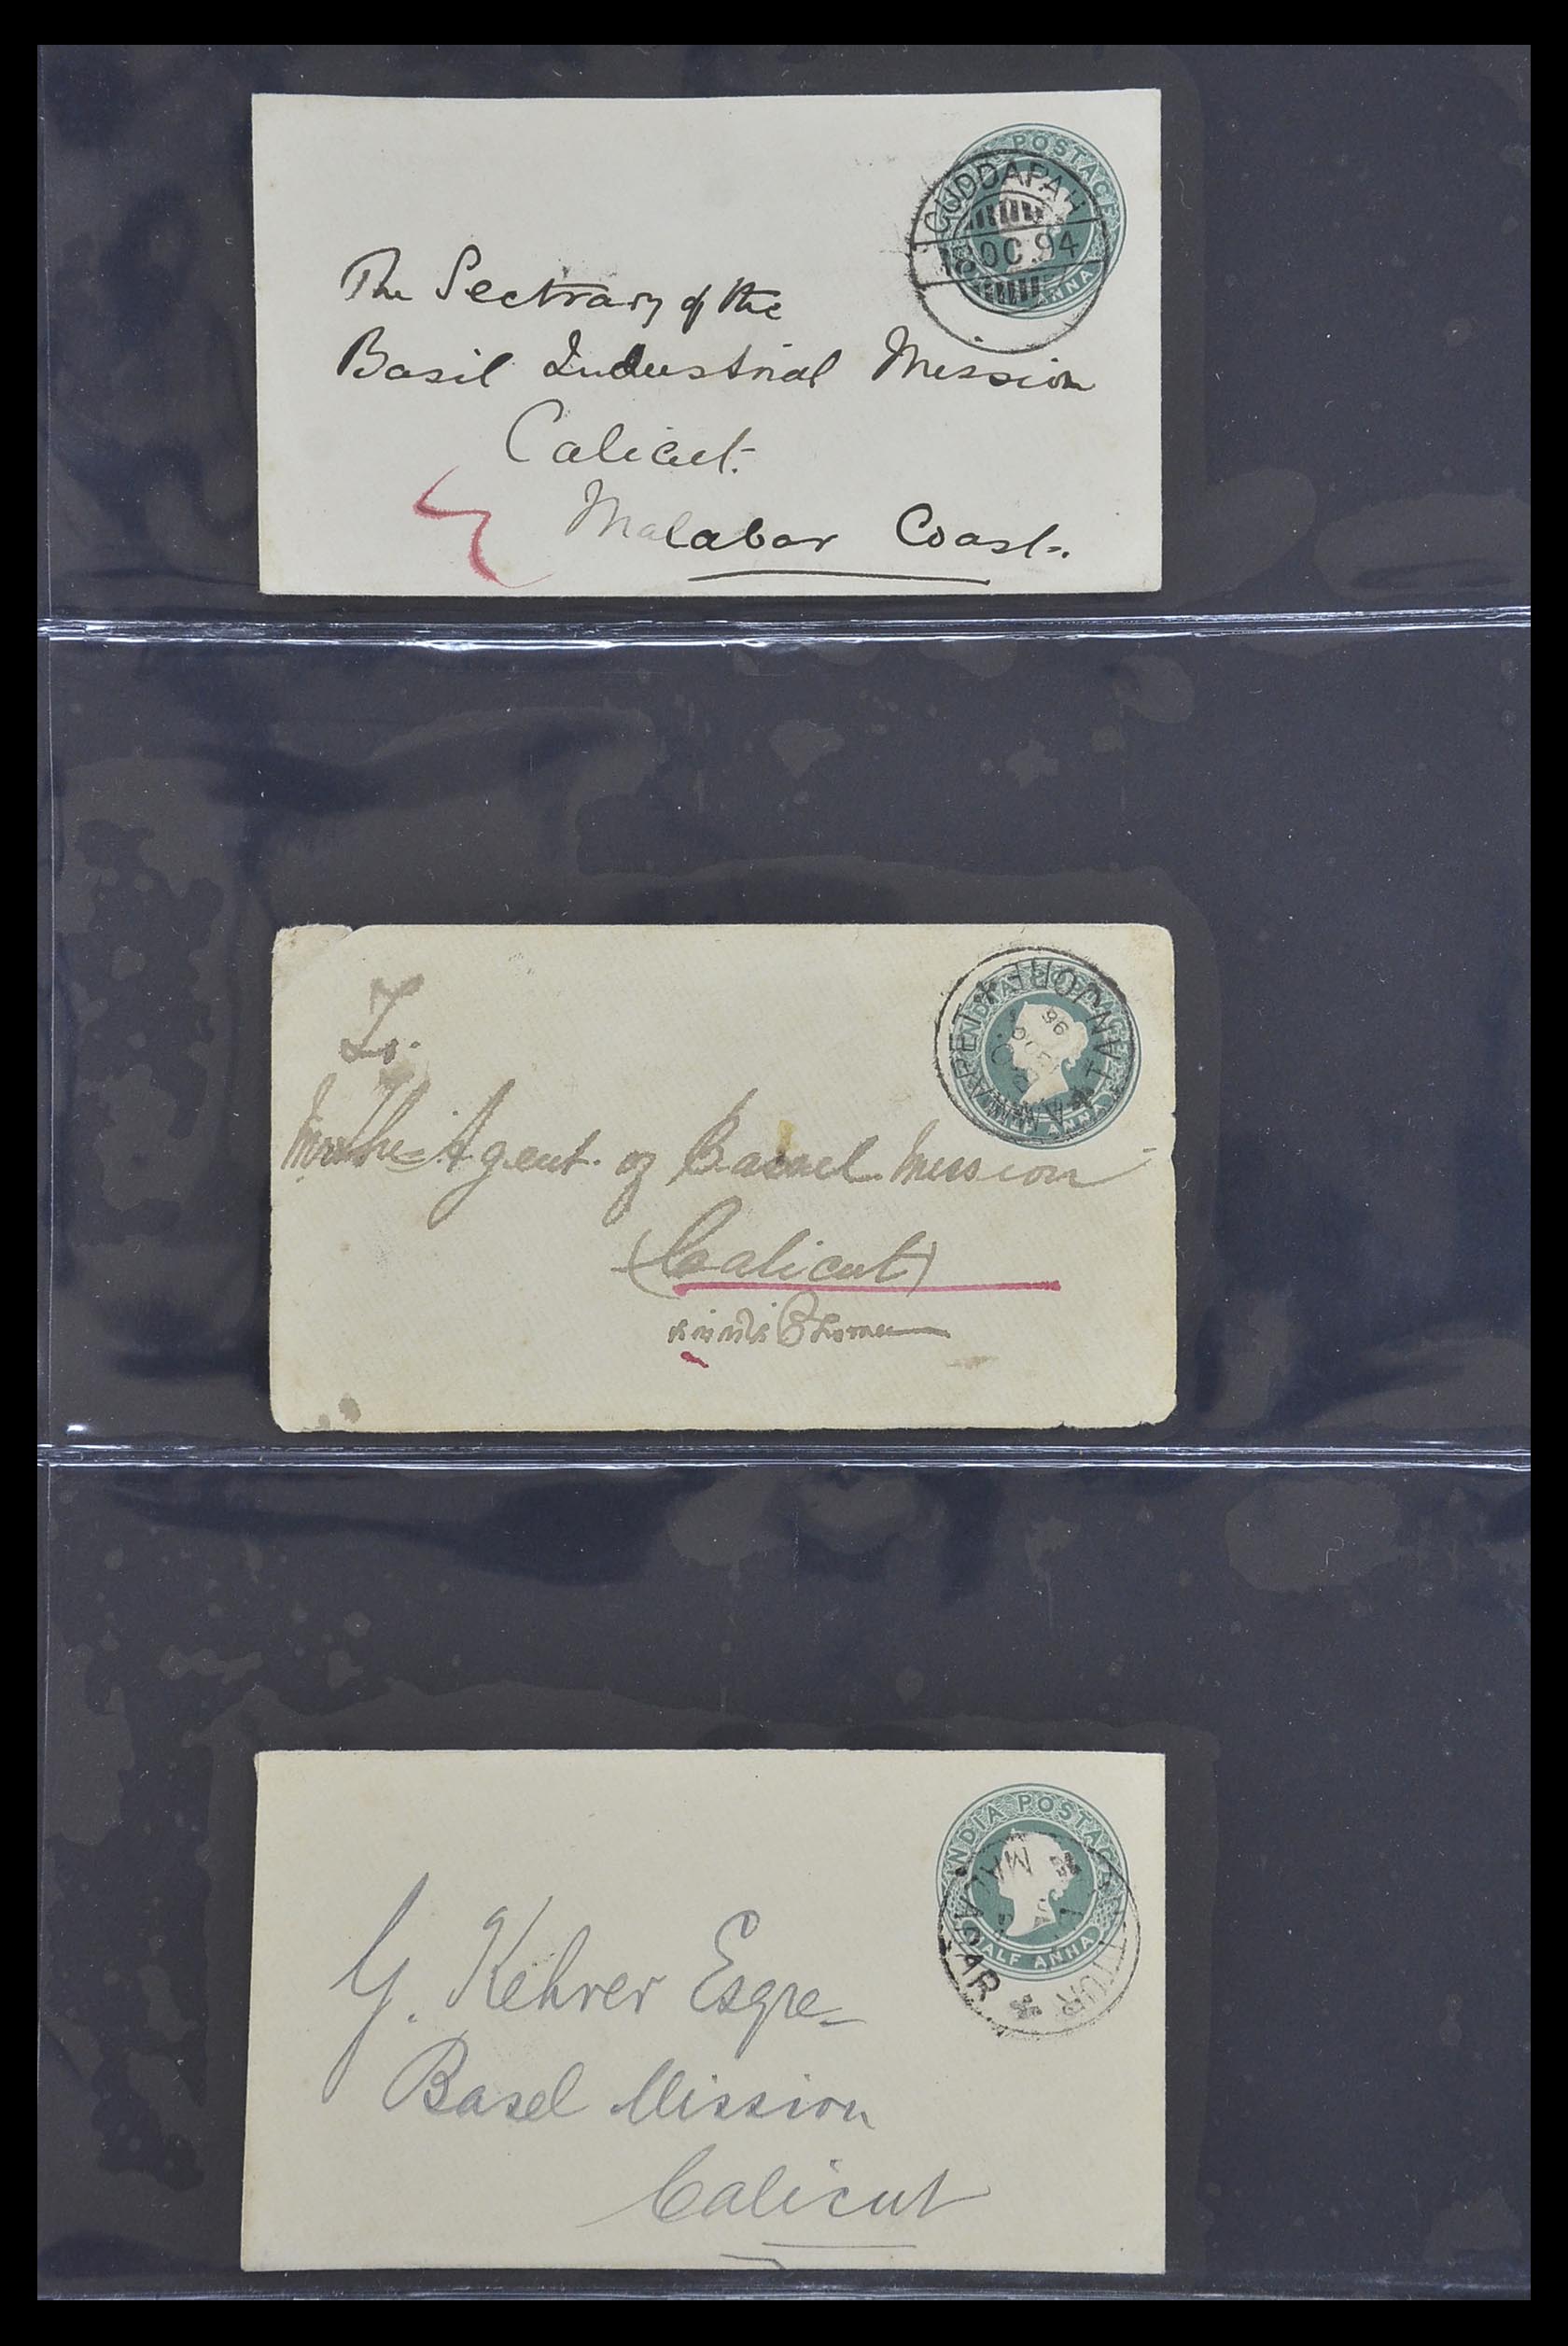 POSTAGE
CUDDAPAH
18 OC 94
ANNA
The Sectrary of the
Basil Industrial Mission
Calicut.
Malabar Coast.
TANJORE
96
HALF ANNA
To.
The Agent of Bassel Mission
(Calicut)
INDIA POSTAGE
MALABAR
HALF ANNA
G. Kehrer Esqre
Basel Mission
Calicut